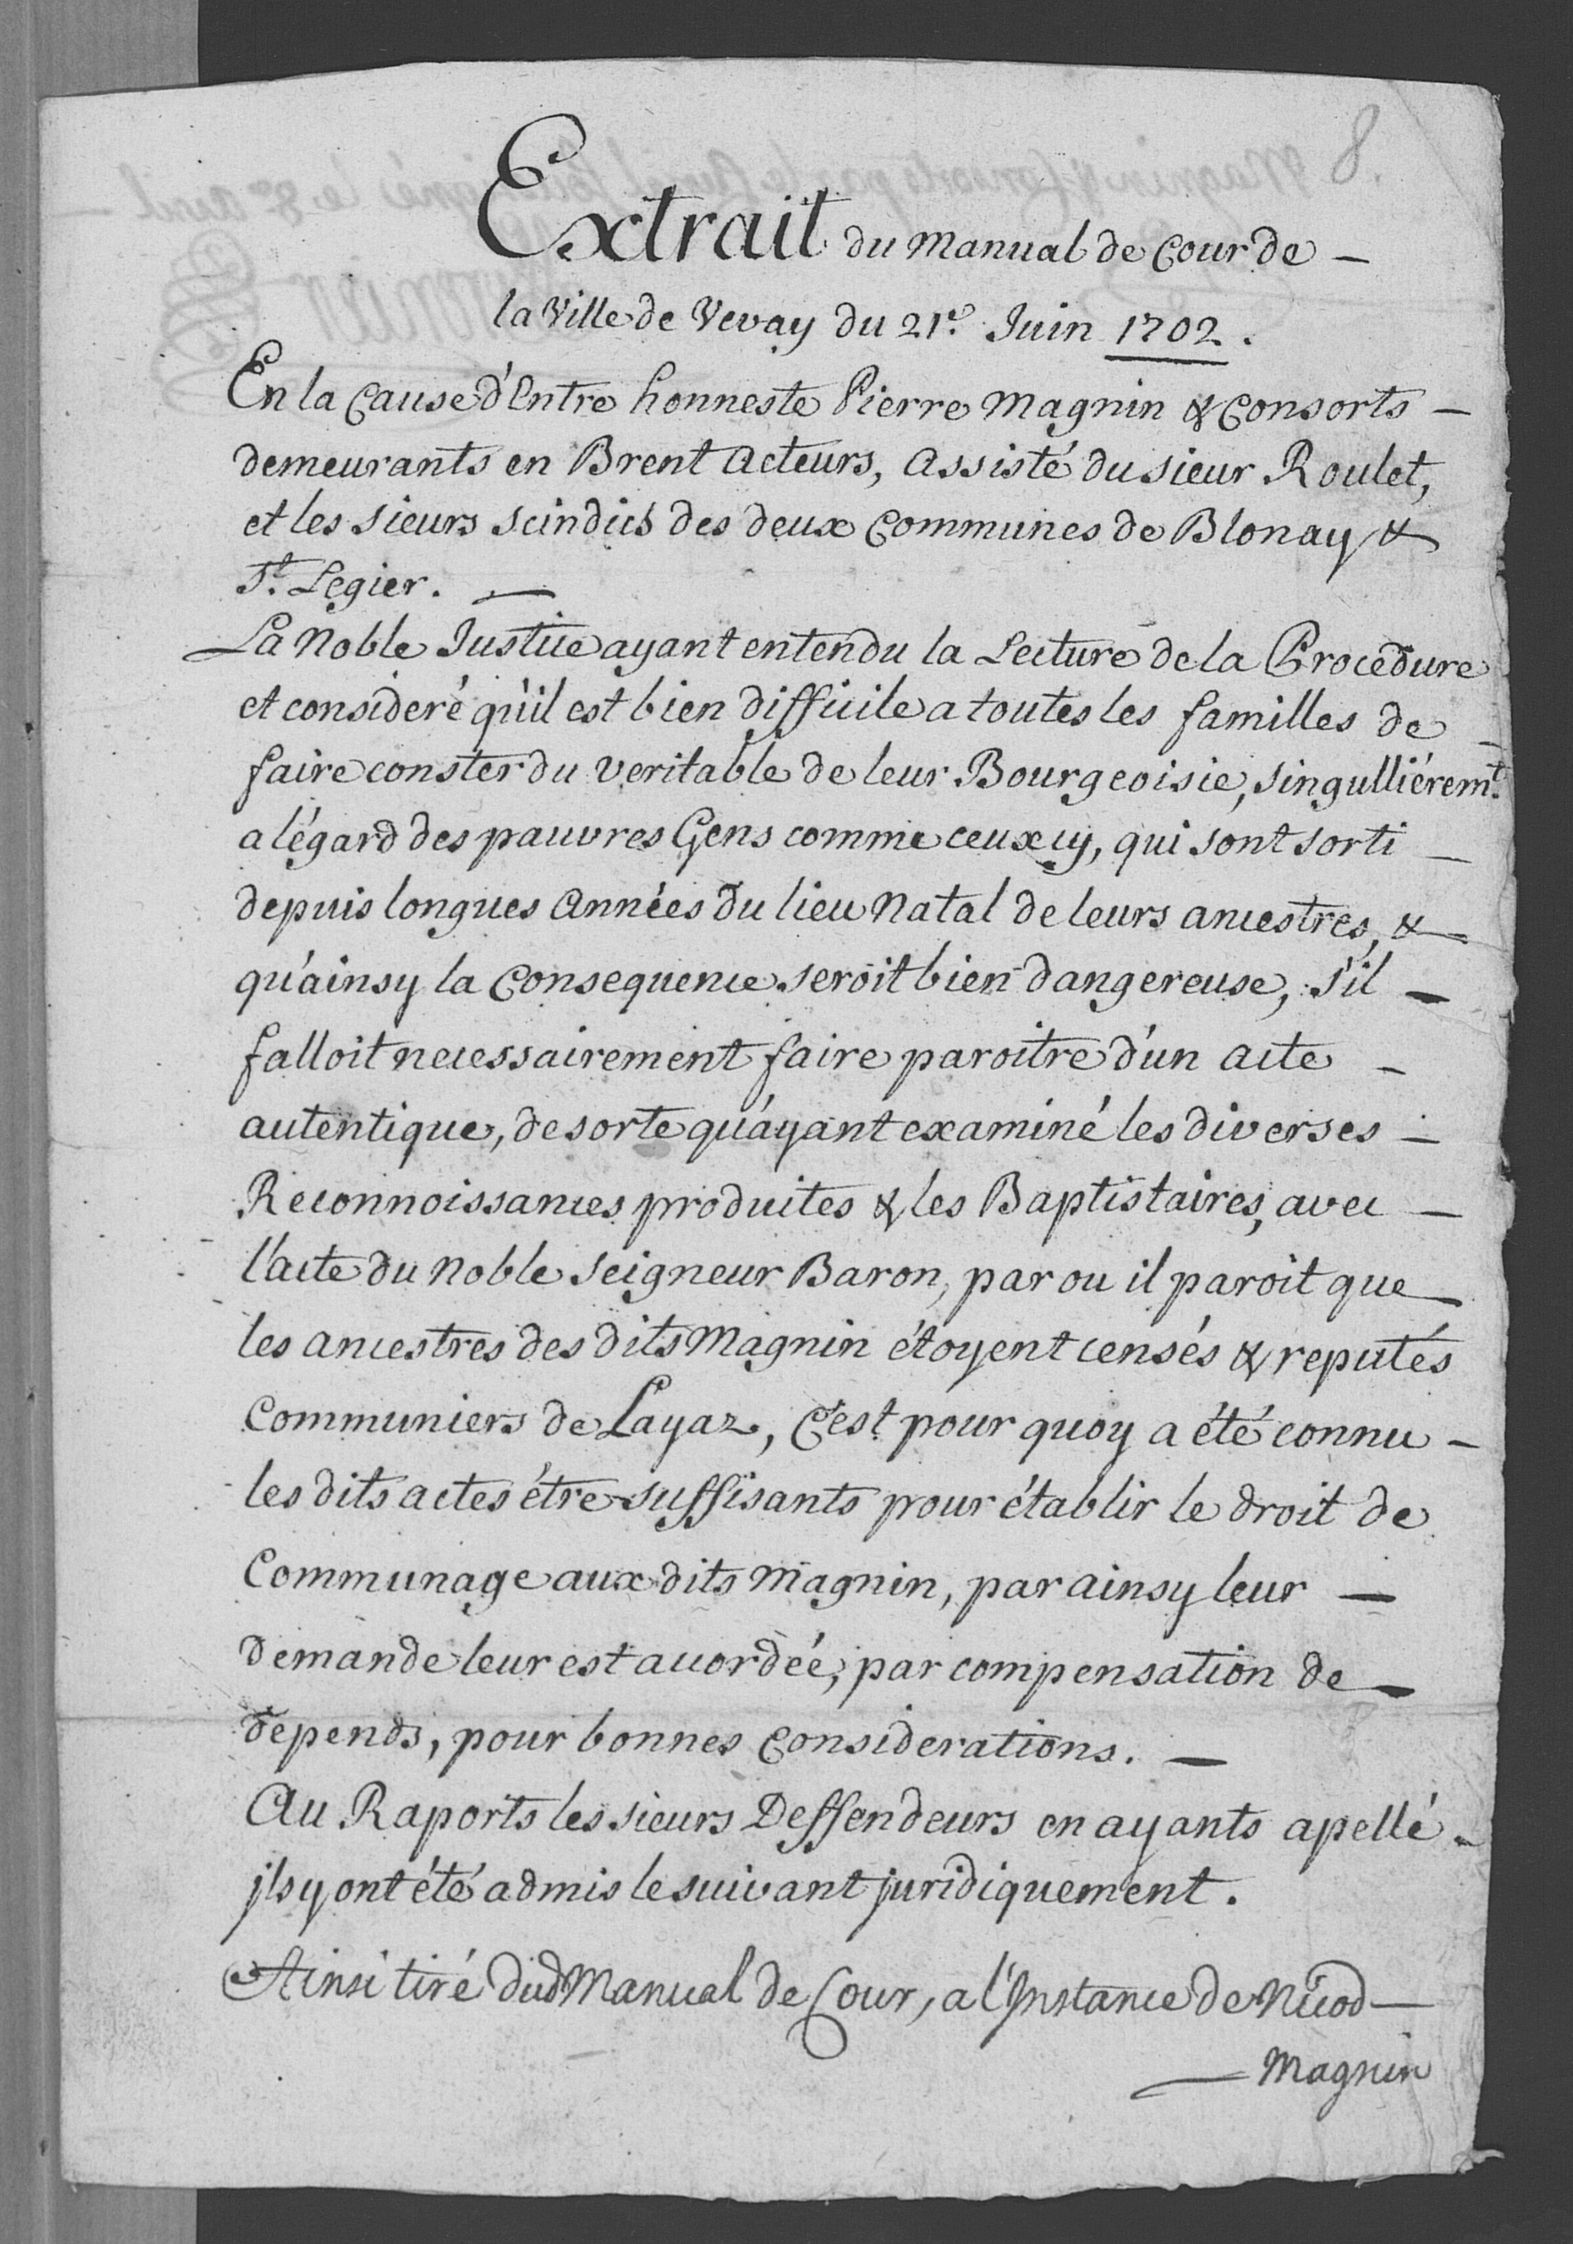 8.
Extrait du Manual de Cour de —
la Ville de Vevay du 21.e Juin 1702.
En la Cause d'Entre honneste Pierre Magnin & Consorts —
demeurants en Brent Acteurs, Assisté du sieur Roulet,
et les sieurs scindics des deux Communes de Blonay &
St. Legier. —
La Noble Justice ayant entendu la Lecture de la Procedure
et consideré qu'il est bien difficile a toutes les familles de —
faire conster du veritable de leur Bourgeoisie, singulliéremt.
a légard des pauvres Gens comme ceux cy, qui sont sorti —
depuis longues Années du lieu Natal de leurs ancestres, &
qu'ainsy la Consequence seroit bien dangereuse, s'il —
falloit necessairement faire paroitre d'un acte —
autentique, de sorte qu'ayant examiné les diverses —
Reconnoissances produites & les Baptistaires, avec —
l'acte du Noble seigneur Baron, par ou il paroit que
les ancestres des dits Magnin étoyent censés & reputés
Communiers de Layaz, C'est pour quoy a été connu —
les dits actes étre suffisants pour établir le droit de
Communage aux dits Magnin, par ainsy leur —
demande leur est accordéé, par compensation de —
depends, pour bonnes Considerations. —
Au Raports les sieurs Deffendeurs en ayants apellé —
jls y ont été admis le suivant juridiquement.
Ainsi tiré dud Manual de Cour, a l'Instance de Nicod —
— Magnin